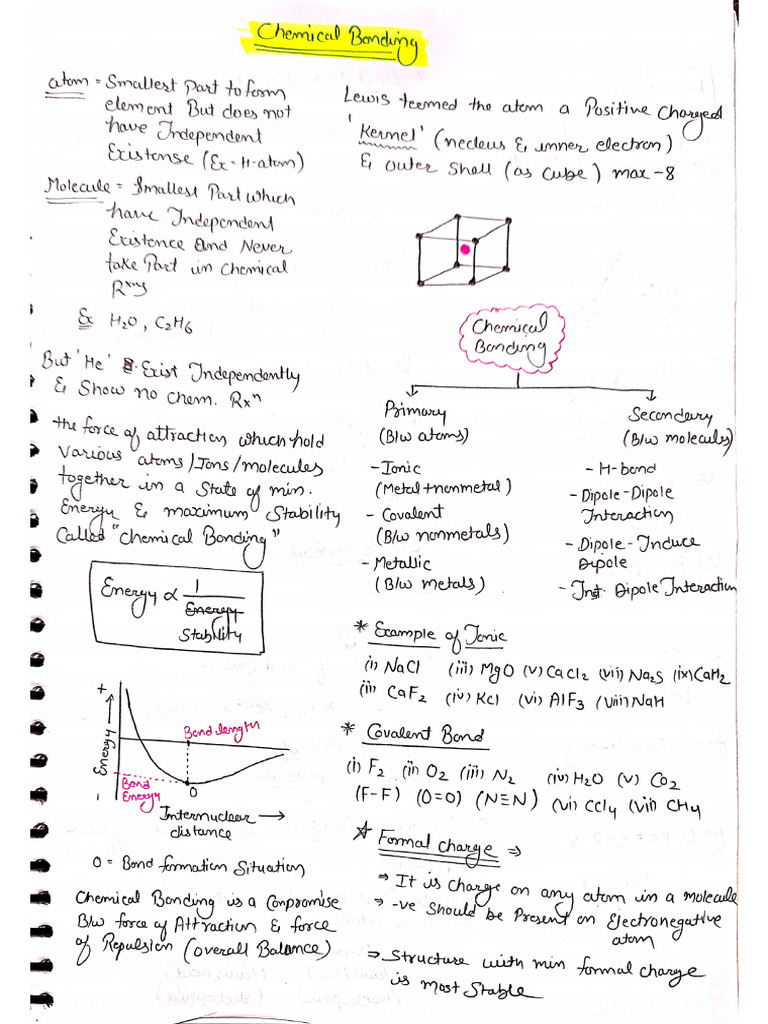 Chemical Bonding
atom = Smallest Part to form
element But does not
have Independent
Existense (Ex - H-atom)
Molecule = Smallest Part which
have Independent
Existence and Never
take Part in Chemical
Rxnys
Ex H2O, C2H6
But 'He' Exist Independently
& Show no Chem. Rxn
the force of attraction which hold
Various atoms/Ions/molecules
together in a State of min.
Energy & maximum Stability
Called "Chemical Bonding"
Energy ∝ 1
Energy
Stability
+
Energy →
Bond length
Bond
Energy
0
Internuclear →
distance
0 = Bond formation Situation
Chemical Bonding is a Compromise
B/w force of Attraction & force
of Repulsion (overall Balance)
Lewis teermed the atom a Positive Charged
'Kernel' (necleus & inner electron)
& outer Shell (as Cube) max - 8
Chemical
Bonding
Primary
(B/w atoms)
- Ionic
(Metal + nonmetal)
- Covalent
(B/w nonmetals)
- Metallic
(B/w metals)
Secondary
(B/w molecules)
- H-bond
- Dipole-Dipole
Interaction
- Dipole-Induce
Dipole
- Inst. Dipole Interaction
* Example of Ionic
(i) NaCl (iii) MgO (v) CaCl2 (vii) Na2S (ix) CaH2
(ii) CaF2 (iv) KCl (vi) AlF3 (viii) NaH
* Covalent Bond
(i) F2 (ii) O2 (iii) N2 (iv) H2O (v) CO2
(F-F) (O=O) (N≡N) (vi) CCl4 (vii) CH4
* Formal Charge ⇒
⇒ It is charge on any atom in a molecule
⇒ -ve Should be Present on Electronegative
atom
⇒ Structure with min formal charge
is most Stable